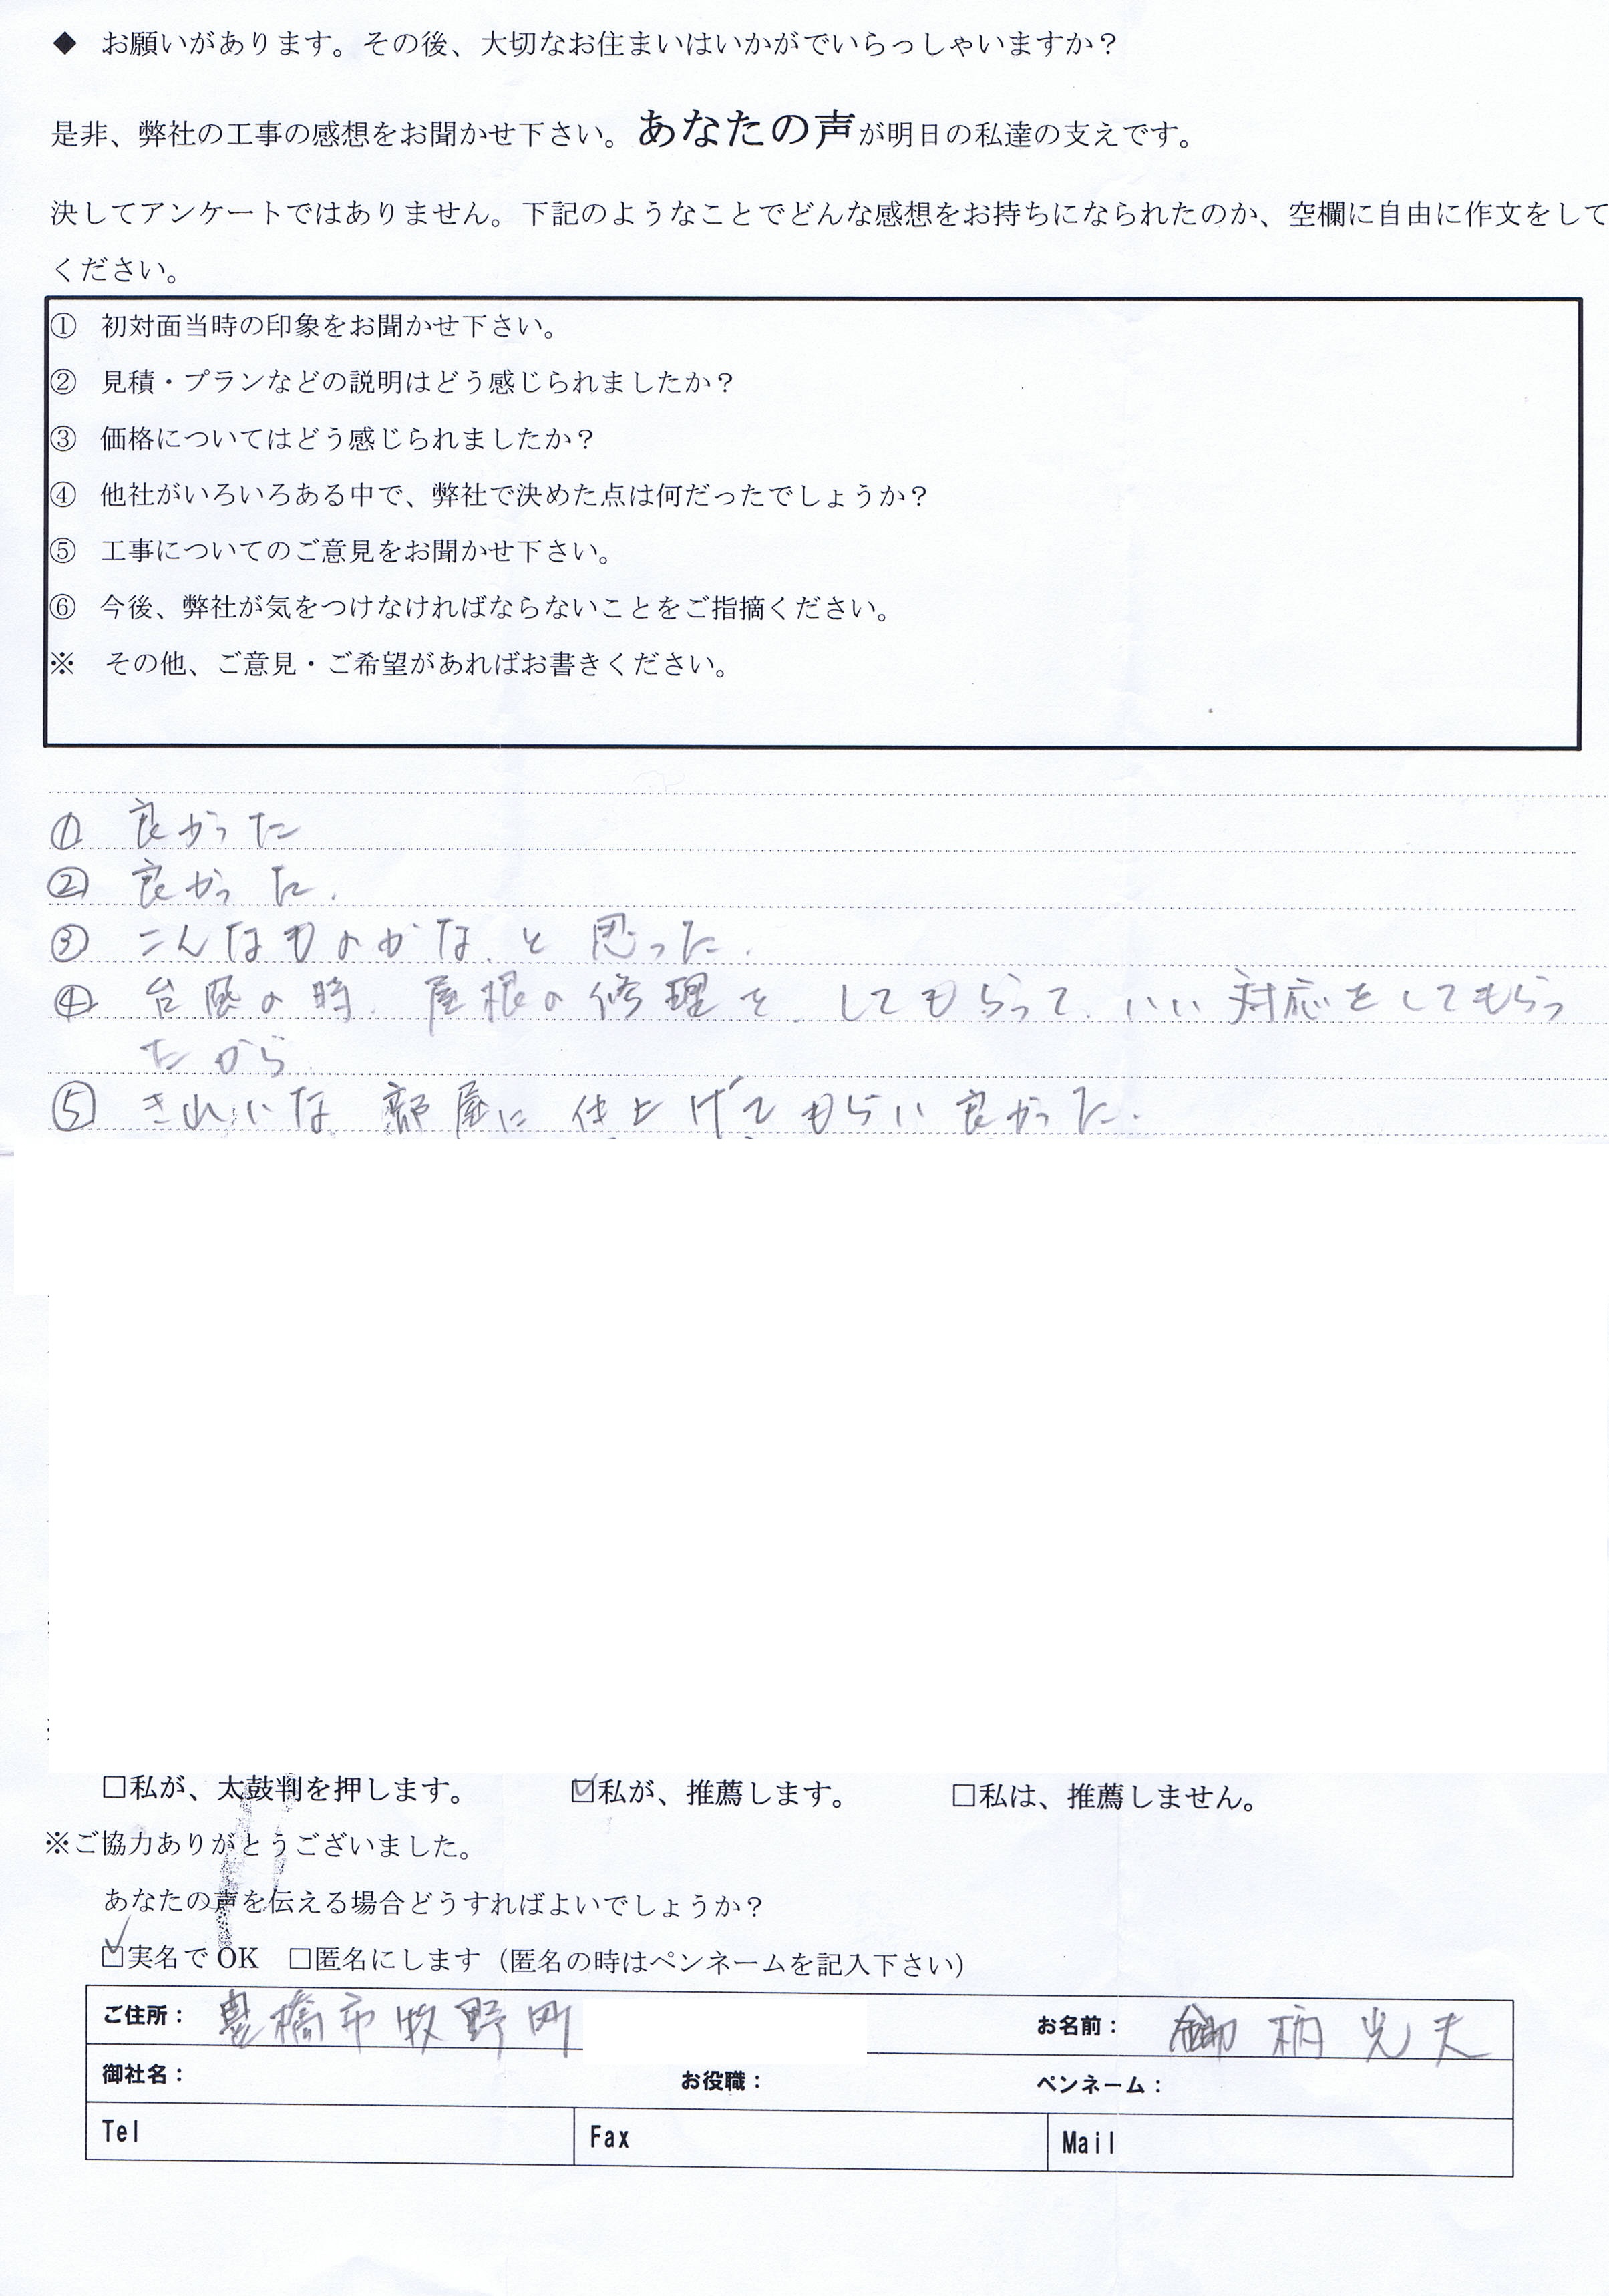 ◆ お願いがあります。その後、大切なお住まいはいかがでいらっしゃいますか？
是非、弊社の工事の感想をお聞かせ下さい。あなたの声が明日の私達の支えです。
決してアンケートではありません。下記のようなことでどんな感想をお持ちになられたのか、空欄に自由に作文をして
ください。
① 初対面当時の印象をお聞かせ下さい。
② 見積・プランなどの説明はどう感じられましたか？
③ 価格についてはどう感じられましたか？
④ 他社がいろいろある中で、弊社で決めた点は何だったでしょうか？
⑤ 工事についてのご意見をお聞かせ下さい。
⑥ 今後、弊社が気をつけなければならないことをご指摘ください。
※ その他、ご意見・ご希望があればお書きください。
① 良かった
② 良かった.
③ こんなものかな、と思った.
④ 台風の時、屋根の修理を、してもらって、いい対応をしてもらっ
たから.
⑤ きれいな部屋に仕上げてもらい良かった.
□私が、太鼓判を押します。 ☑私が、推薦します。 □私は、推薦しません。
※ご協力ありがとうございました。
あなたの声を伝える場合どうすればよいでしょうか？
☑実名でOK □匿名にします（匿名の時はペンネームを記入下さい）
ご住所： 豊橋市牧野町 お名前： 柄光夫
御社名： お役職： ペンネーム：
Tel Fax Mail